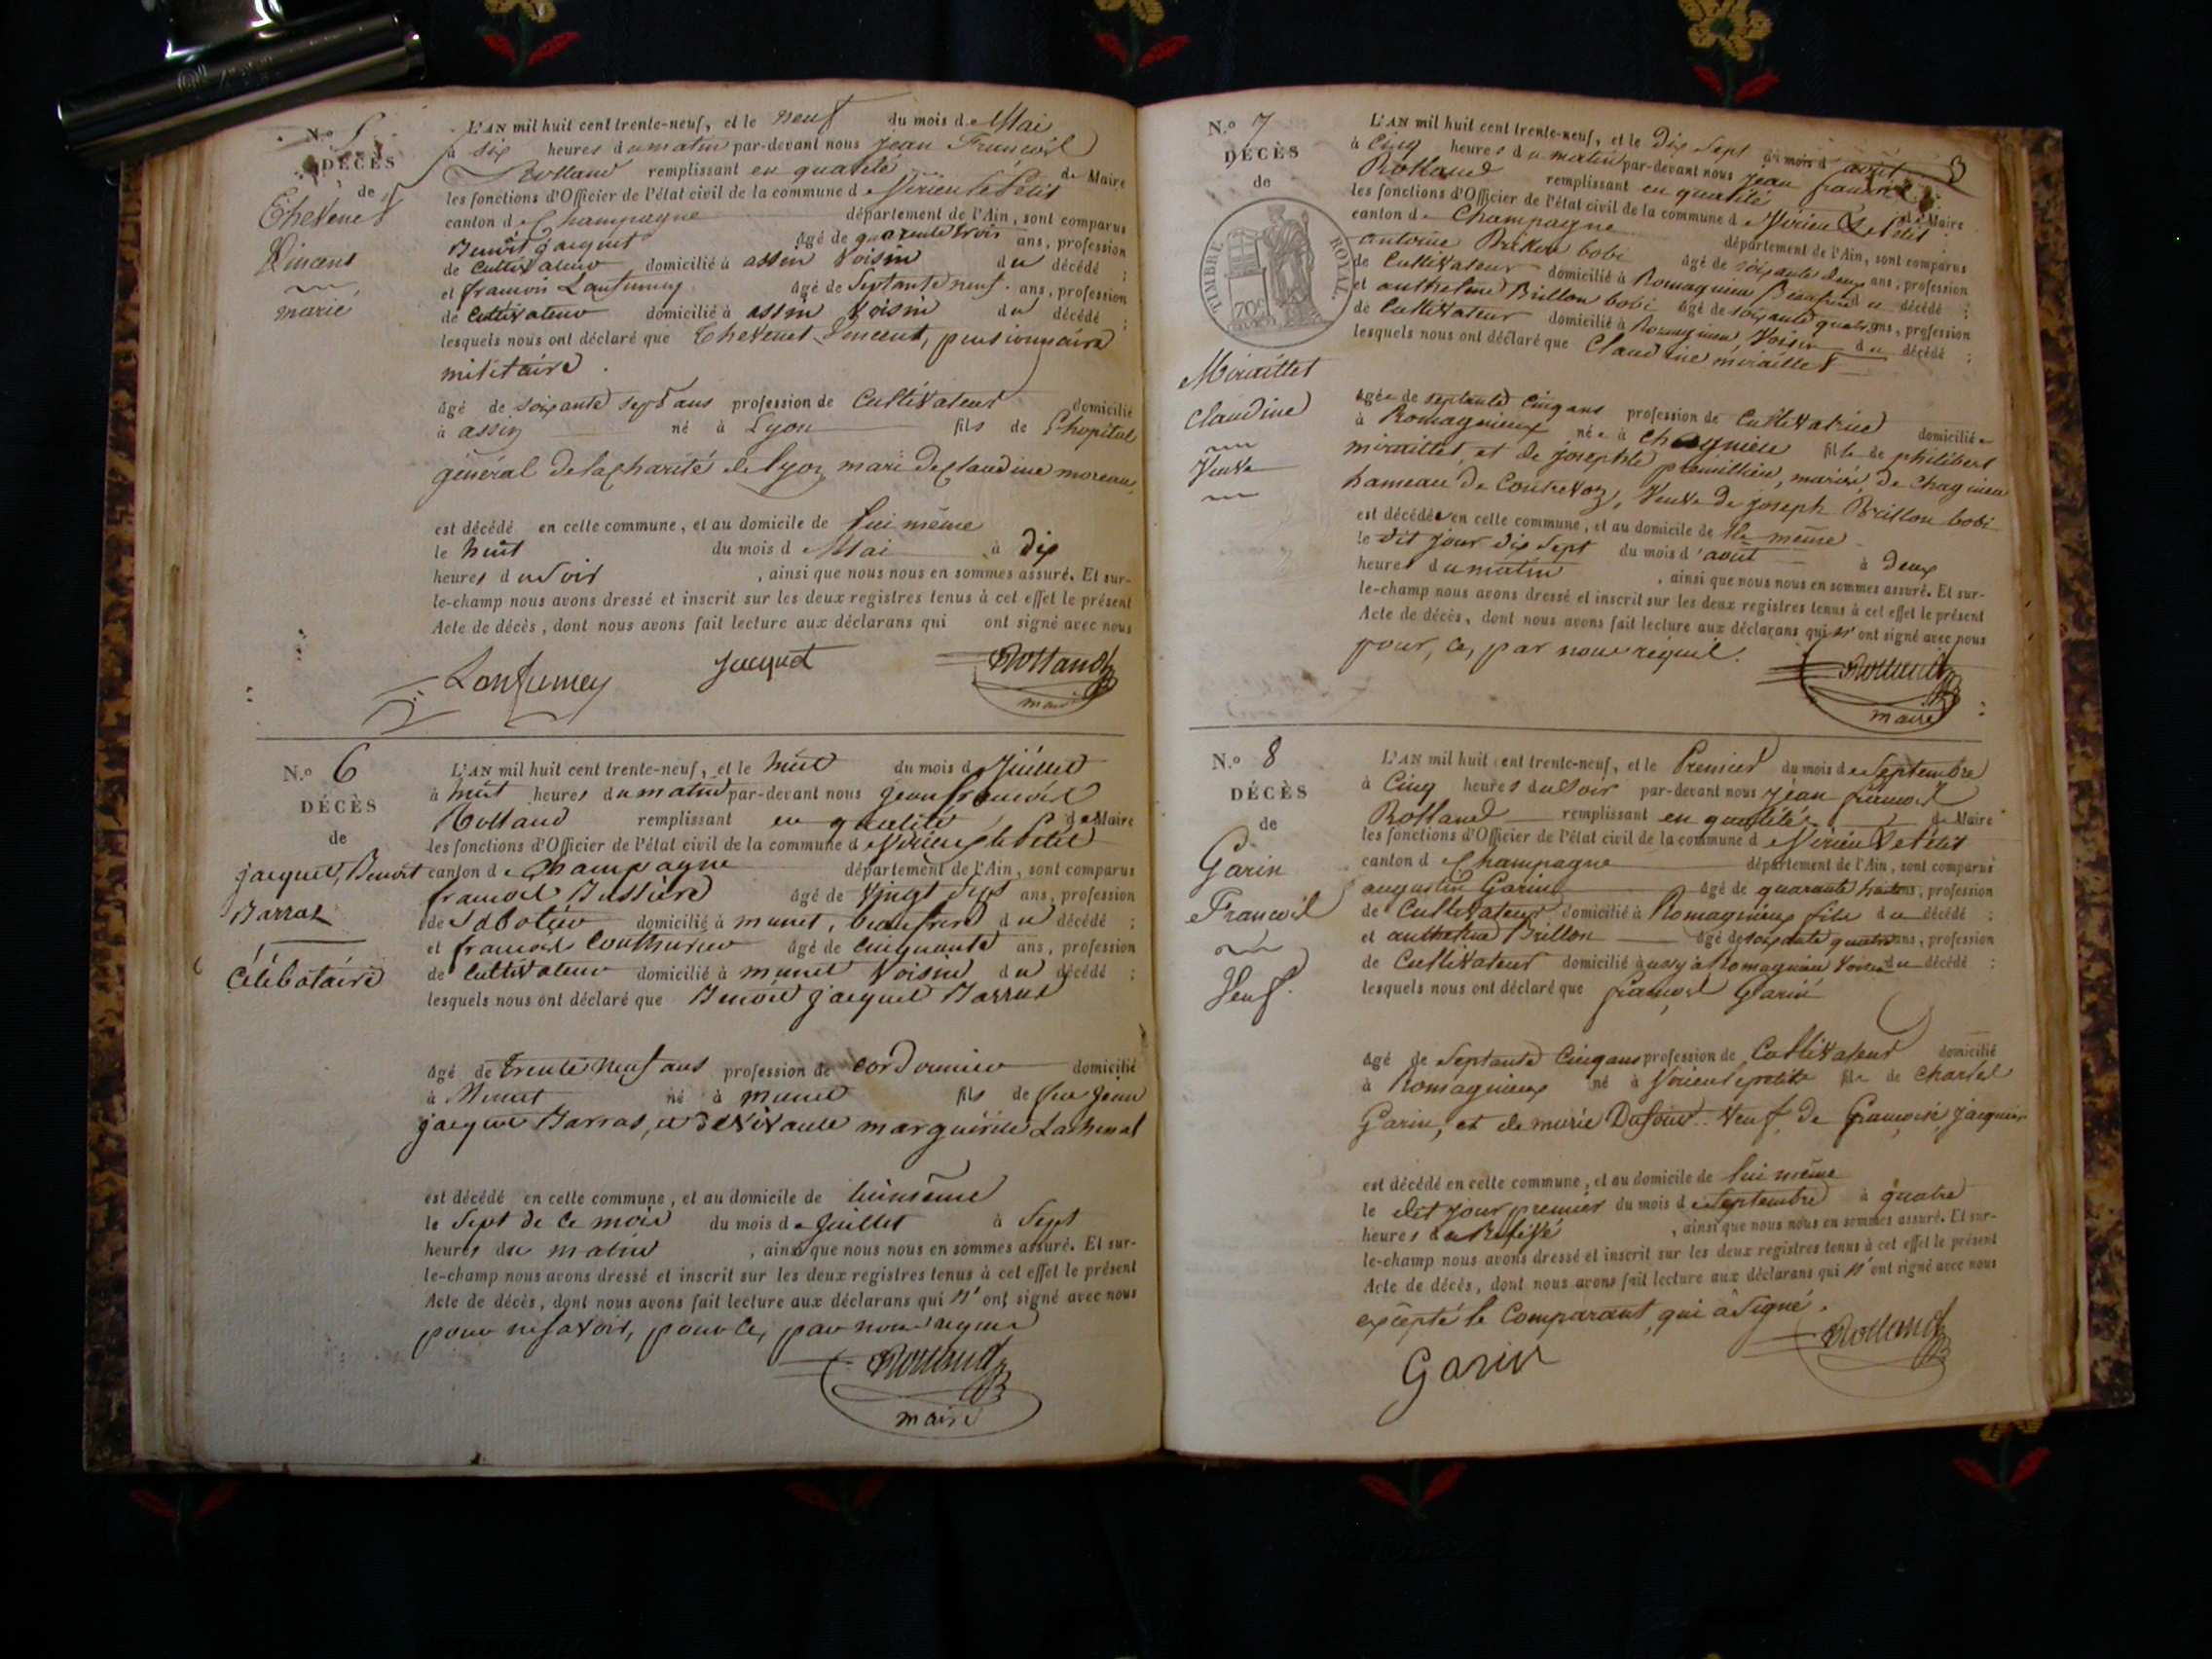 N.o 5
DÉCÈS
de
Thevenet
Vincent
marié
L'AN mil huit cent trente-neuf, et le neuf du mois de Mai
à six heures du matin par-devant nous Jean François
Rolland remplissant en qualité de Maire
les fonctions d'Officier de l'état civil de la commune de Virieu le Petit
canton de Champagne département de l'Ain, sont comparus
Benoit Jacquet âgé de quarante trois ans, profession
de Cultivateur domicilié à assin Voisin du décédé ;
et françois Lanfumey âgé de Septante neuf ans, profession
de Cultivateur domicilié à assin Voisin du décédé ;
lesquels nous ont déclaré que Thevenet Vincent, pensionnaire
militaire.
âgé de soixante sept ans profession de Cultivateur domicilié
à assin né à Lyon fils de l'hopital
général de la charité de lyon, mari de claudine moreau,
est décédé en cette commune, et au domicile de lui même
le huit du mois de Mai à dix
heures du Soir , ainsi que nous nous en sommes assuré. Et sur-
le-champ nous avons dressé et inscrit sur les deux registres tenus à cet effet le présent
Acte de décès, dont nous avons fait lecture aux déclarans qui ont signé avec nous
Lanfumey Jacquet Rolland
maire
N.o 6
DÉCÈS
de
jacquet, Benoit
Barrat
Célibataire
L'AN mil huit cent trente-neuf, et le huit du mois de Juillet
à huit heures du matin par-devant nous jean françois
Rolland remplissant en qualité de Maire
les fonctions d'Officier de l'état civil de la commune de Virieu le Petit
canton de Champagne département de l'Ain, sont comparus
françois Bussiere âgé de Vingt Sept ans, profession
de Sabotier domicilié à munet, beaufrere du décédé ;
et françois Couthurier âgé de Cinquante ans, profession
de Cultivateur domicilié à munet Voisin du décédé ;
lesquels nous ont déclaré que Benoit jacquet Barrat
âgé de trente neuf ans profession de cordonnier domicilié
à Munet né à munet fils de feu Jean
jacquet Barrat, et de Vivante marguerite Lachenal
est décédé en cette commune, et au domicile de lui même
le Sept de ce mois du mois de Juillet à Sept
heures du matin , ainsi que nous nous en sommes assuré. Et sur-
le-champ nous avons dressé et inscrit sur les deux registres tenus à cet effet le présent
Acte de décès, dont nous avons fait lecture aux déclarans qui n'ont signé avec nous
pour ne savoir, pour ce, par nous requis
Rolland
maire
N.o 7
DÉCÈS
de
TIMBRE ROYAL
70c
Miraillet
Claudine
Veuve
L'AN mil huit cent trente-neuf, et le Dix Sept du mois d'août
à Cinq heures du matin par-devant nous Jean françois
Rolland remplissant en qualité de Maire
les fonctions d'Officier de l'état civil de la commune de Virieu le Petit
canton de Champagne département de l'Ain, sont comparus
antoine Brillon bobi âgé de soixante deux ans, profession
de Cultivateur domicilié à Romagnieu Beaufrere du décédé ;
et anthelme Brillon bobi âgé de soixante quatre ans, profession
de Cultivateur domicilié à Romagnieu Voisin du décédé ;
lesquels nous ont déclaré que Claudine miraillet
âgée de septante Cinq ans profession de Cultivatrice domiciliée
à Romagnieux née à Chagnieu fille de philibert
miraillet, et de josephte, mariée, de Chagnieu
hameau de Contrevoz, Veuve de joseph Brillon bobi
est décédée en cette commune, et au domicile de Elle même
le dit jour dix Sept du mois d'août à deux
heures du matin , ainsi que nous nous en sommes assuré. Et sur-
le-champ nous avons dressé et inscrit sur les deux registres tenus à cet effet le présent
Acte de décès, dont nous avons fait lecture aux déclarans qui n'ont signé avec nous
pour, ce, par nous requis.
Rolland
maire
N.o 8
DÉCÈS
de
Garin
François
Veuf.
L'AN mil huit cent trente-neuf, et le Premier du mois de Septembre
à Cinq heures du Soir par-devant nous Jean françois
Rolland remplissant en qualité de Maire
les fonctions d'Officier de l'état civil de la commune de Virieu le Petit
canton de Champagne département de l'Ain, sont comparus
augustin Garin âgé de quarante huit ans, profession
de Cultivateur domicilié à Romagnieux fils du décédé ;
et anthelme Brillon âgé de soixante quatre ans, profession
de Cultivateur domicilié à Romagnieu Voisin du décédé ;
lesquels nous ont déclaré que françois Garin
âgé de Septante Cinq ans profession de Cultivateur domicilié
à Romagnieux né à Virieu le petit fils de Charles
Garin, et de marie Dufour. Veuf de françoise jacquier
est décédé en cette commune, et au domicile de lui même
le dit jour premier du mois de Septembre à quatre
heures , ainsi que nous nous en sommes assuré. Et sur-
le-champ nous avons dressé et inscrit sur les deux registres tenus à cet effet le présent
Acte de décès, dont nous avons fait lecture aux déclarans qui n'ont signé avec nous
excepté le Comparant, qui à Signé.
Garin Rolland